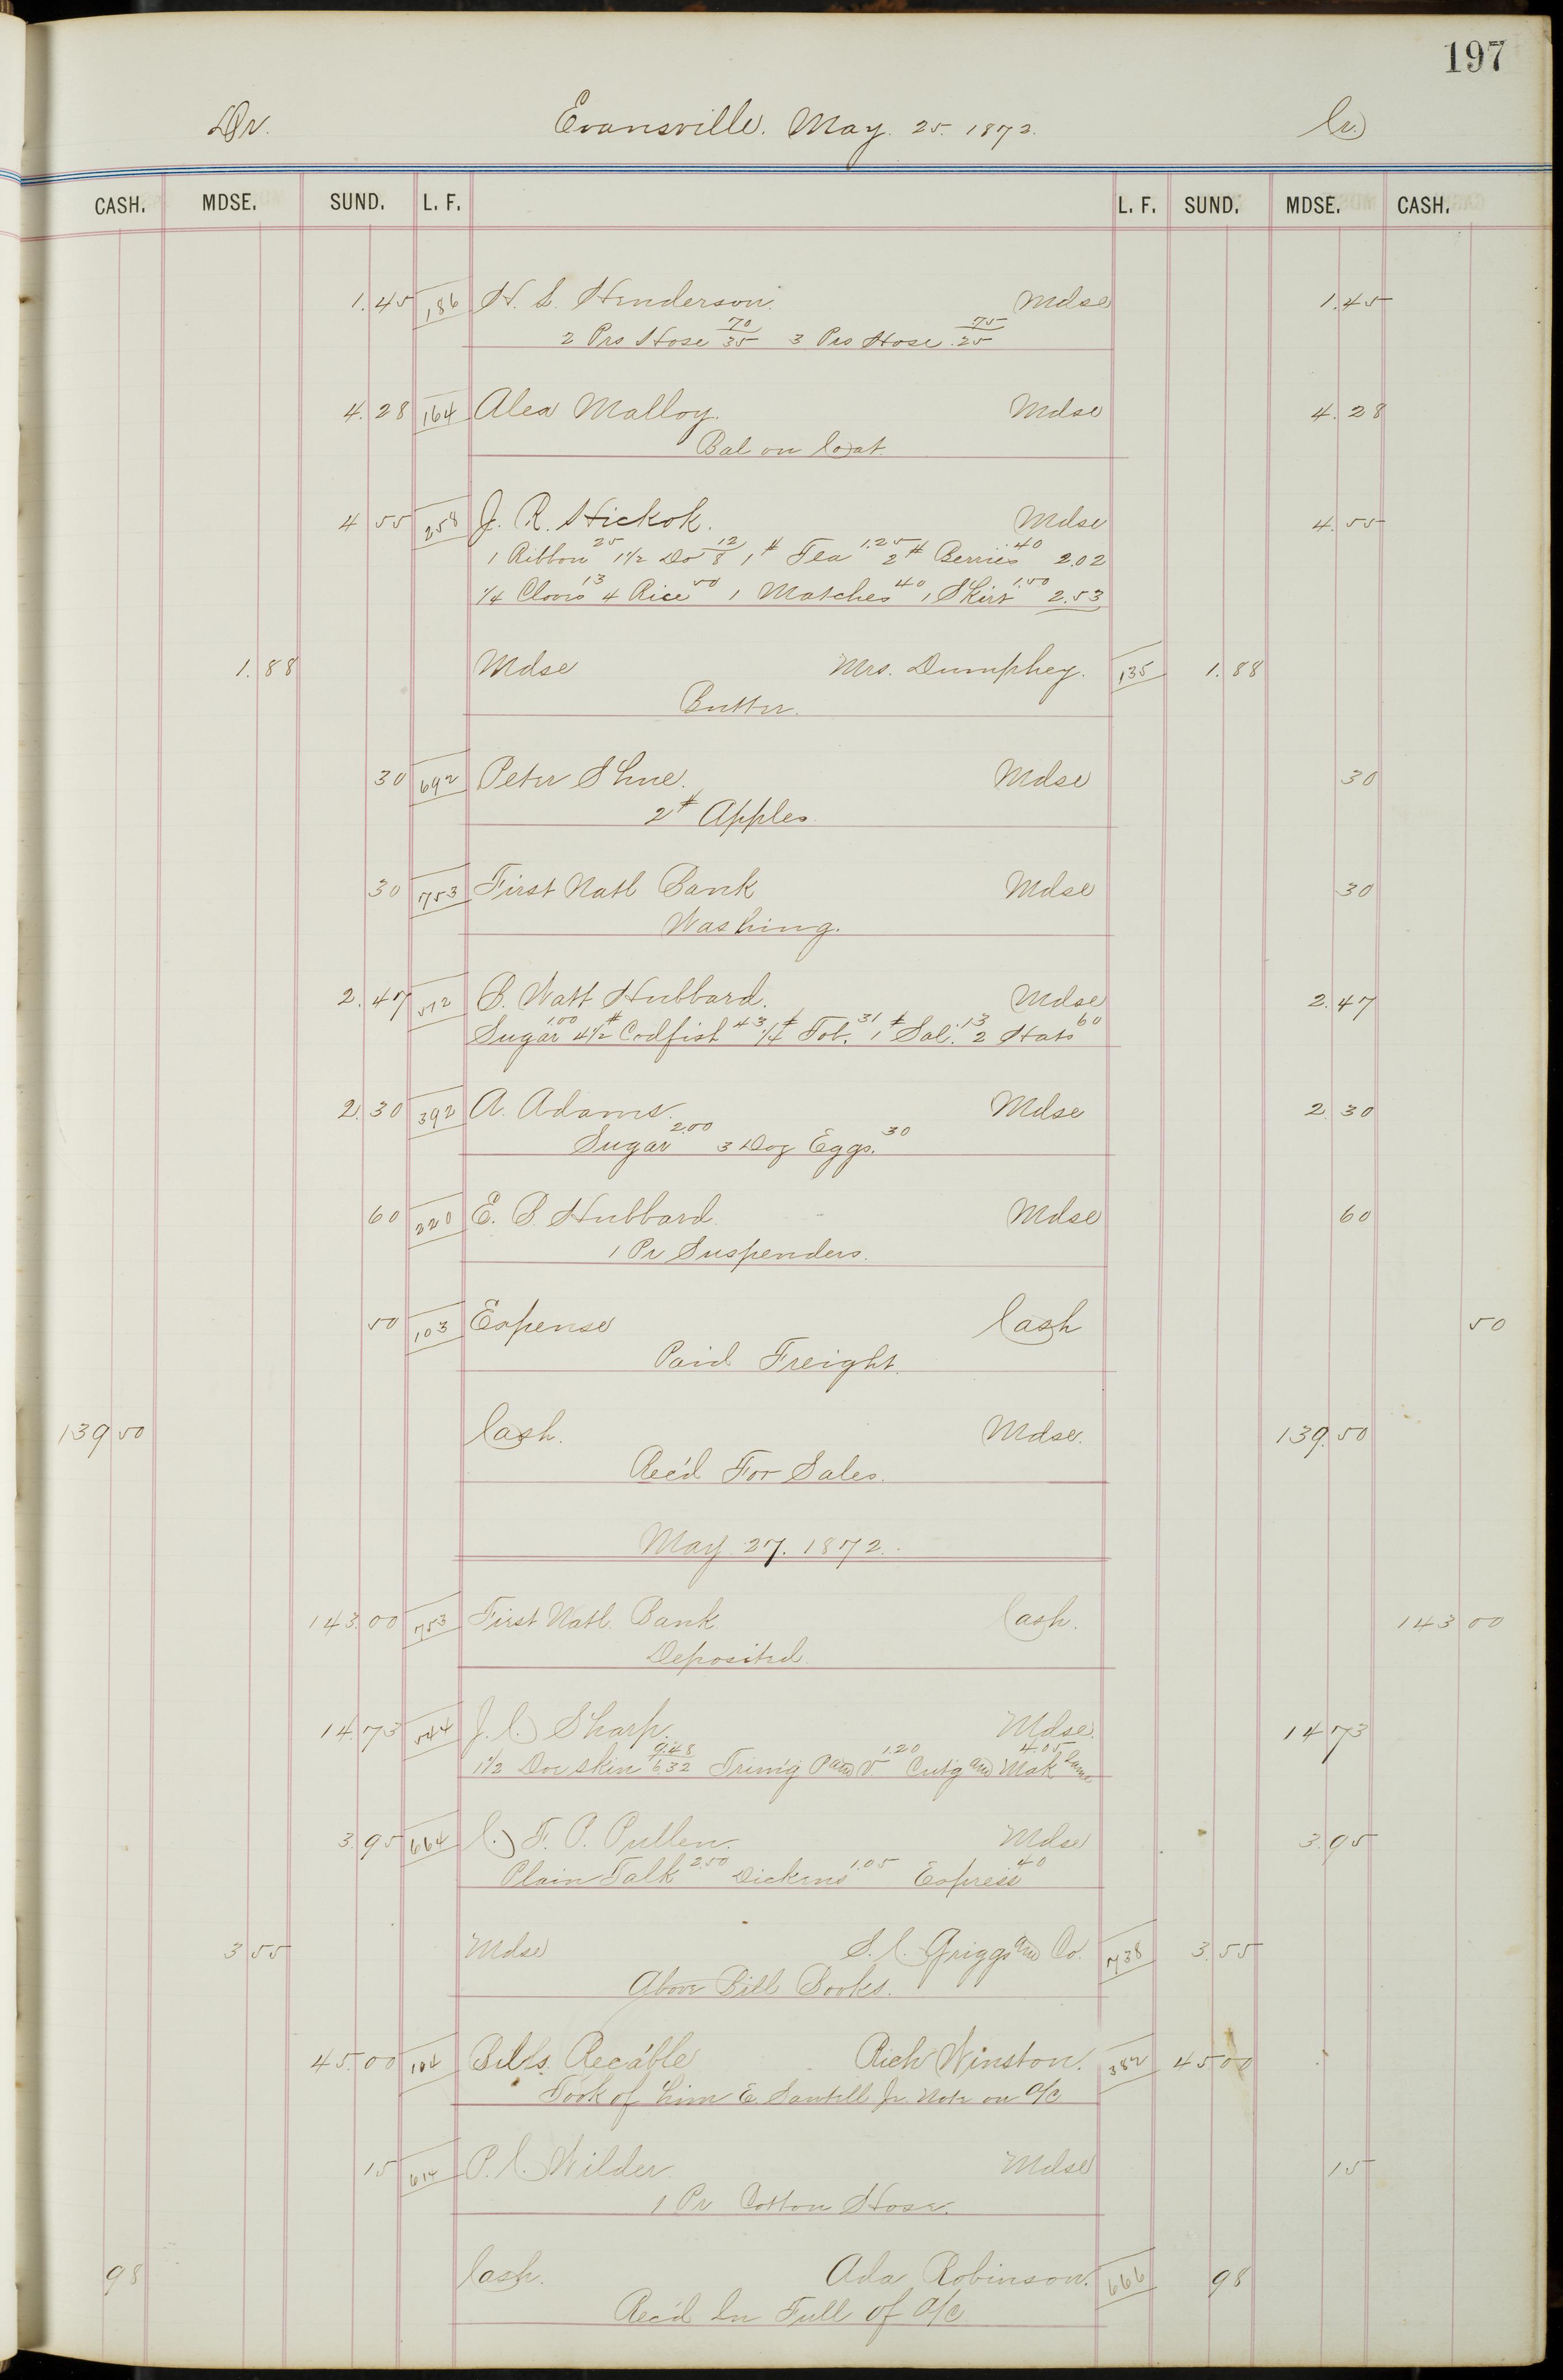 197
Dr. Evansville. May. 25. 1872. Cr.
CASH. MDSE. SUND. L. F. L. F. SUND. MDSE. CASH.
1.45 186 H. L. Henderson. Mdse 1.45
2 Prs Hose 70/35 3 Prs Hose 75/.25
4.28 164 Alex Malloy. Mdse 4.28
Bal on Coat
4 55 258 J. R. Hickok. Mdse 4.55
1 Ribbon 25 1 1/2 Do 12/8 1 # Tea 1.25 2 # Berries .40 2.02
1/4 Cloves 13 4 Rice 50 1 Matches 40 1 Skirt 1.50 2.53
1.88 Mdse Mrs. Dumphey. 135 1.88
Butter.
30 692 Peter Shue. Mdse 30
2 # Apples.
30 753 First Natl Bank Mdse 30
Washing.
2.47 512 B. Watt Hubbard. Mdse 2.47
Sugar 1.00 4 1/2 # Codfish 43 1/4 # Tob. 31 1 # Sal. 13 2 Hats 60
2.30 392 A. Adams. Mdse 2 30
Sugar 2.00 3 Doz Eggs. 30
60 220 E. B. Hubbard. Mdse 60
1 Pr Suspenders.
50 103 Expense Cash 50
Paid Freight.
139 50 Cash. Mdse. 139.50
Rec'd For Sales.
May 27. 1872.
143.00 753 First Natl. Bank Cash. 143 00
Deposited.
14.73 544 J. C. Sharp. Mdse. 14 73
1 1/2 Doe skin 9.48/6.32 Trim'g P and V. 1.20 Cut'g and Mak 4.05 Same
3.95 664 C. F. P. Pullen. Mdse 3.95
Plain Talk 2.50 Dickens 1.05 Express .40
3 55 Mdse S. C. Griggs and Co. 738 3.55
Above Bill Books.
45.00 104 Bills. Rec'able Rich Winston. 382 45 00
Took of him E. Jr. Note on a/c
15 614 P. C. Wilder. Mdse 15
1 Pr Cotton Hose.
98 Cash. Ada Robinson. 666 98
Rec'd In Full of a/c